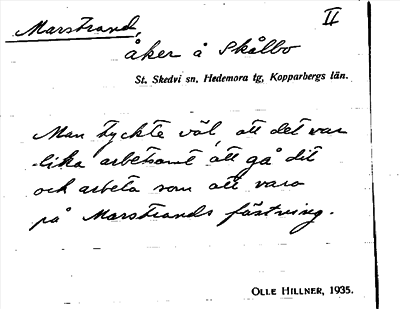 Marstrand, II
åker å Skålbo
St. Skedvi sn, Hedemora tg, Kopparbergs län.
Man tyckte väl, att det var
lika arbetsamt att gå dit
och arbeta som att vara
på Marstrands fästning.
OLLE HILLNER, 1935.